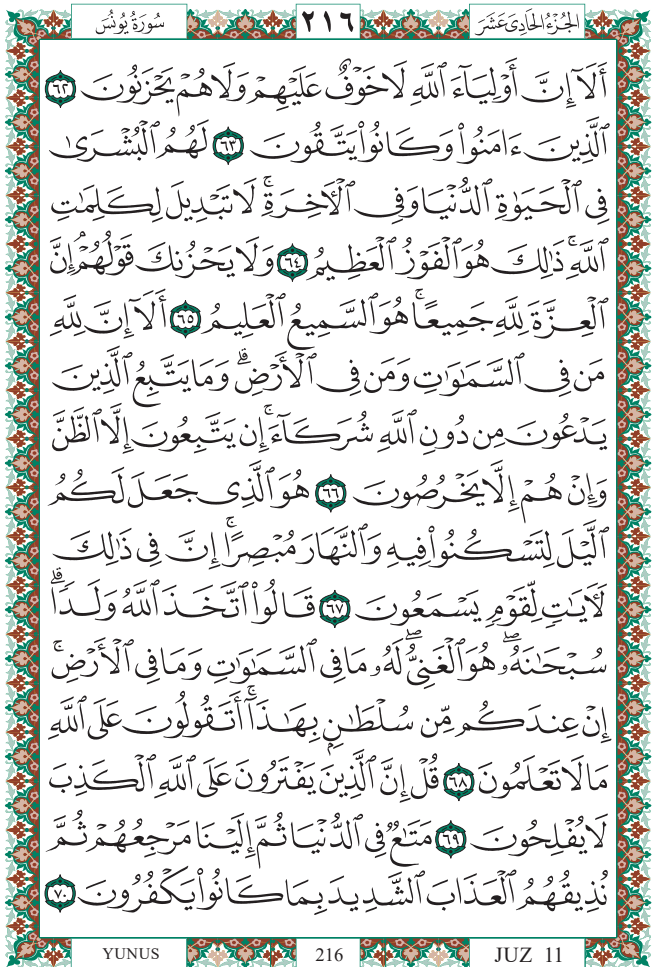 الجُزْءُ الحَادِى عَشَرَ ٢١٦ سُورَةُ يُونُسَ
أَلَآ إِنَّ أَوْلِيَآءَ ٱللَّهِ لَا خَوْفٌ عَلَيْهِمْ وَلَا هُمْ يَحْزَنُونَ ٦٢
ٱلَّذِينَ ءَامَنُوا۟ وَكَانُوا۟ يَتَّقُونَ ٦٣ لَهُمُ ٱلْبُشْرَىٰ
فِى ٱلْحَيَوٰةِ ٱلدُّنْيَا وَفِى ٱلْـَٔاخِرَةِ ۚ لَا تَبْدِيلَ لِكَلِمَـٰتِ
ٱللَّهِ ۚ ذَٰلِكَ هُوَ ٱلْفَوْزُ ٱلْعَظِيمُ ٦٤ وَلَا يَحْزُنكَ قَوْلُهُمْ ۘ إِنَّ
ٱلْعِزَّةَ لِلَّهِ جَمِيعًا ۚ هُوَ ٱلسَّمِيعُ ٱلْعَلِيمُ ٦٥ أَلَآ إِنَّ لِلَّهِ
مَن فِى ٱلسَّمَـٰوَٰتِ وَمَن فِى ٱلْأَرْضِ ۗ وَمَا يَتَّبِعُ ٱلَّذِينَ
يَدْعُونَ مِن دُونِ ٱللَّهِ شُرَكَآءَ ۚ إِن يَتَّبِعُونَ إِلَّا ٱلظَّنَّ
وَإِنْ هُمْ إِلَّا يَخْرُصُونَ ٦٦ هُوَ ٱلَّذِى جَعَلَ لَكُمُ
ٱلَّيْلَ لِتَسْكُنُوا۟ فِيهِ وَٱلنَّهَارَ مُبْصِرًا ۚ إِنَّ فِى ذَٰلِكَ
لَـَٔايَـٰتٍ لِّقَوْمٍ يَسْمَعُونَ ٦٧ قَالُوا۟ ٱتَّخَذَ ٱللَّهُ وَلَدًا ۗ
سُبْحَـٰنَهُۥ ۖ هُوَ ٱلْغَنِىُّ ۖ لَهُۥ مَا فِى ٱلسَّمَـٰوَٰتِ وَمَا فِى ٱلْأَرْضِ ۚ
إِنْ عِندَكُم مِّن سُلْطَـٰنٍۭ بِهَـٰذَآ ۚ أَتَقُولُونَ عَلَى ٱللَّهِ
مَا لَا تَعْلَمُونَ ٦٨ قُلْ إِنَّ ٱلَّذِينَ يَفْتَرُونَ عَلَى ٱللَّهِ ٱلْكَذِبَ
لَا يُفْلِحُونَ ٦٩ مَتَـٰعٌ فِى ٱلدُّنْيَا ثُمَّ إِلَيْنَا مَرْجِعُهُمْ ثُمَّ
نُذِيقُهُمُ ٱلْعَذَابَ ٱلشَّدِيدَ بِمَا كَانُوا۟ يَكْفُرُونَ ٧٠
YUNUS 216 JUZ 11